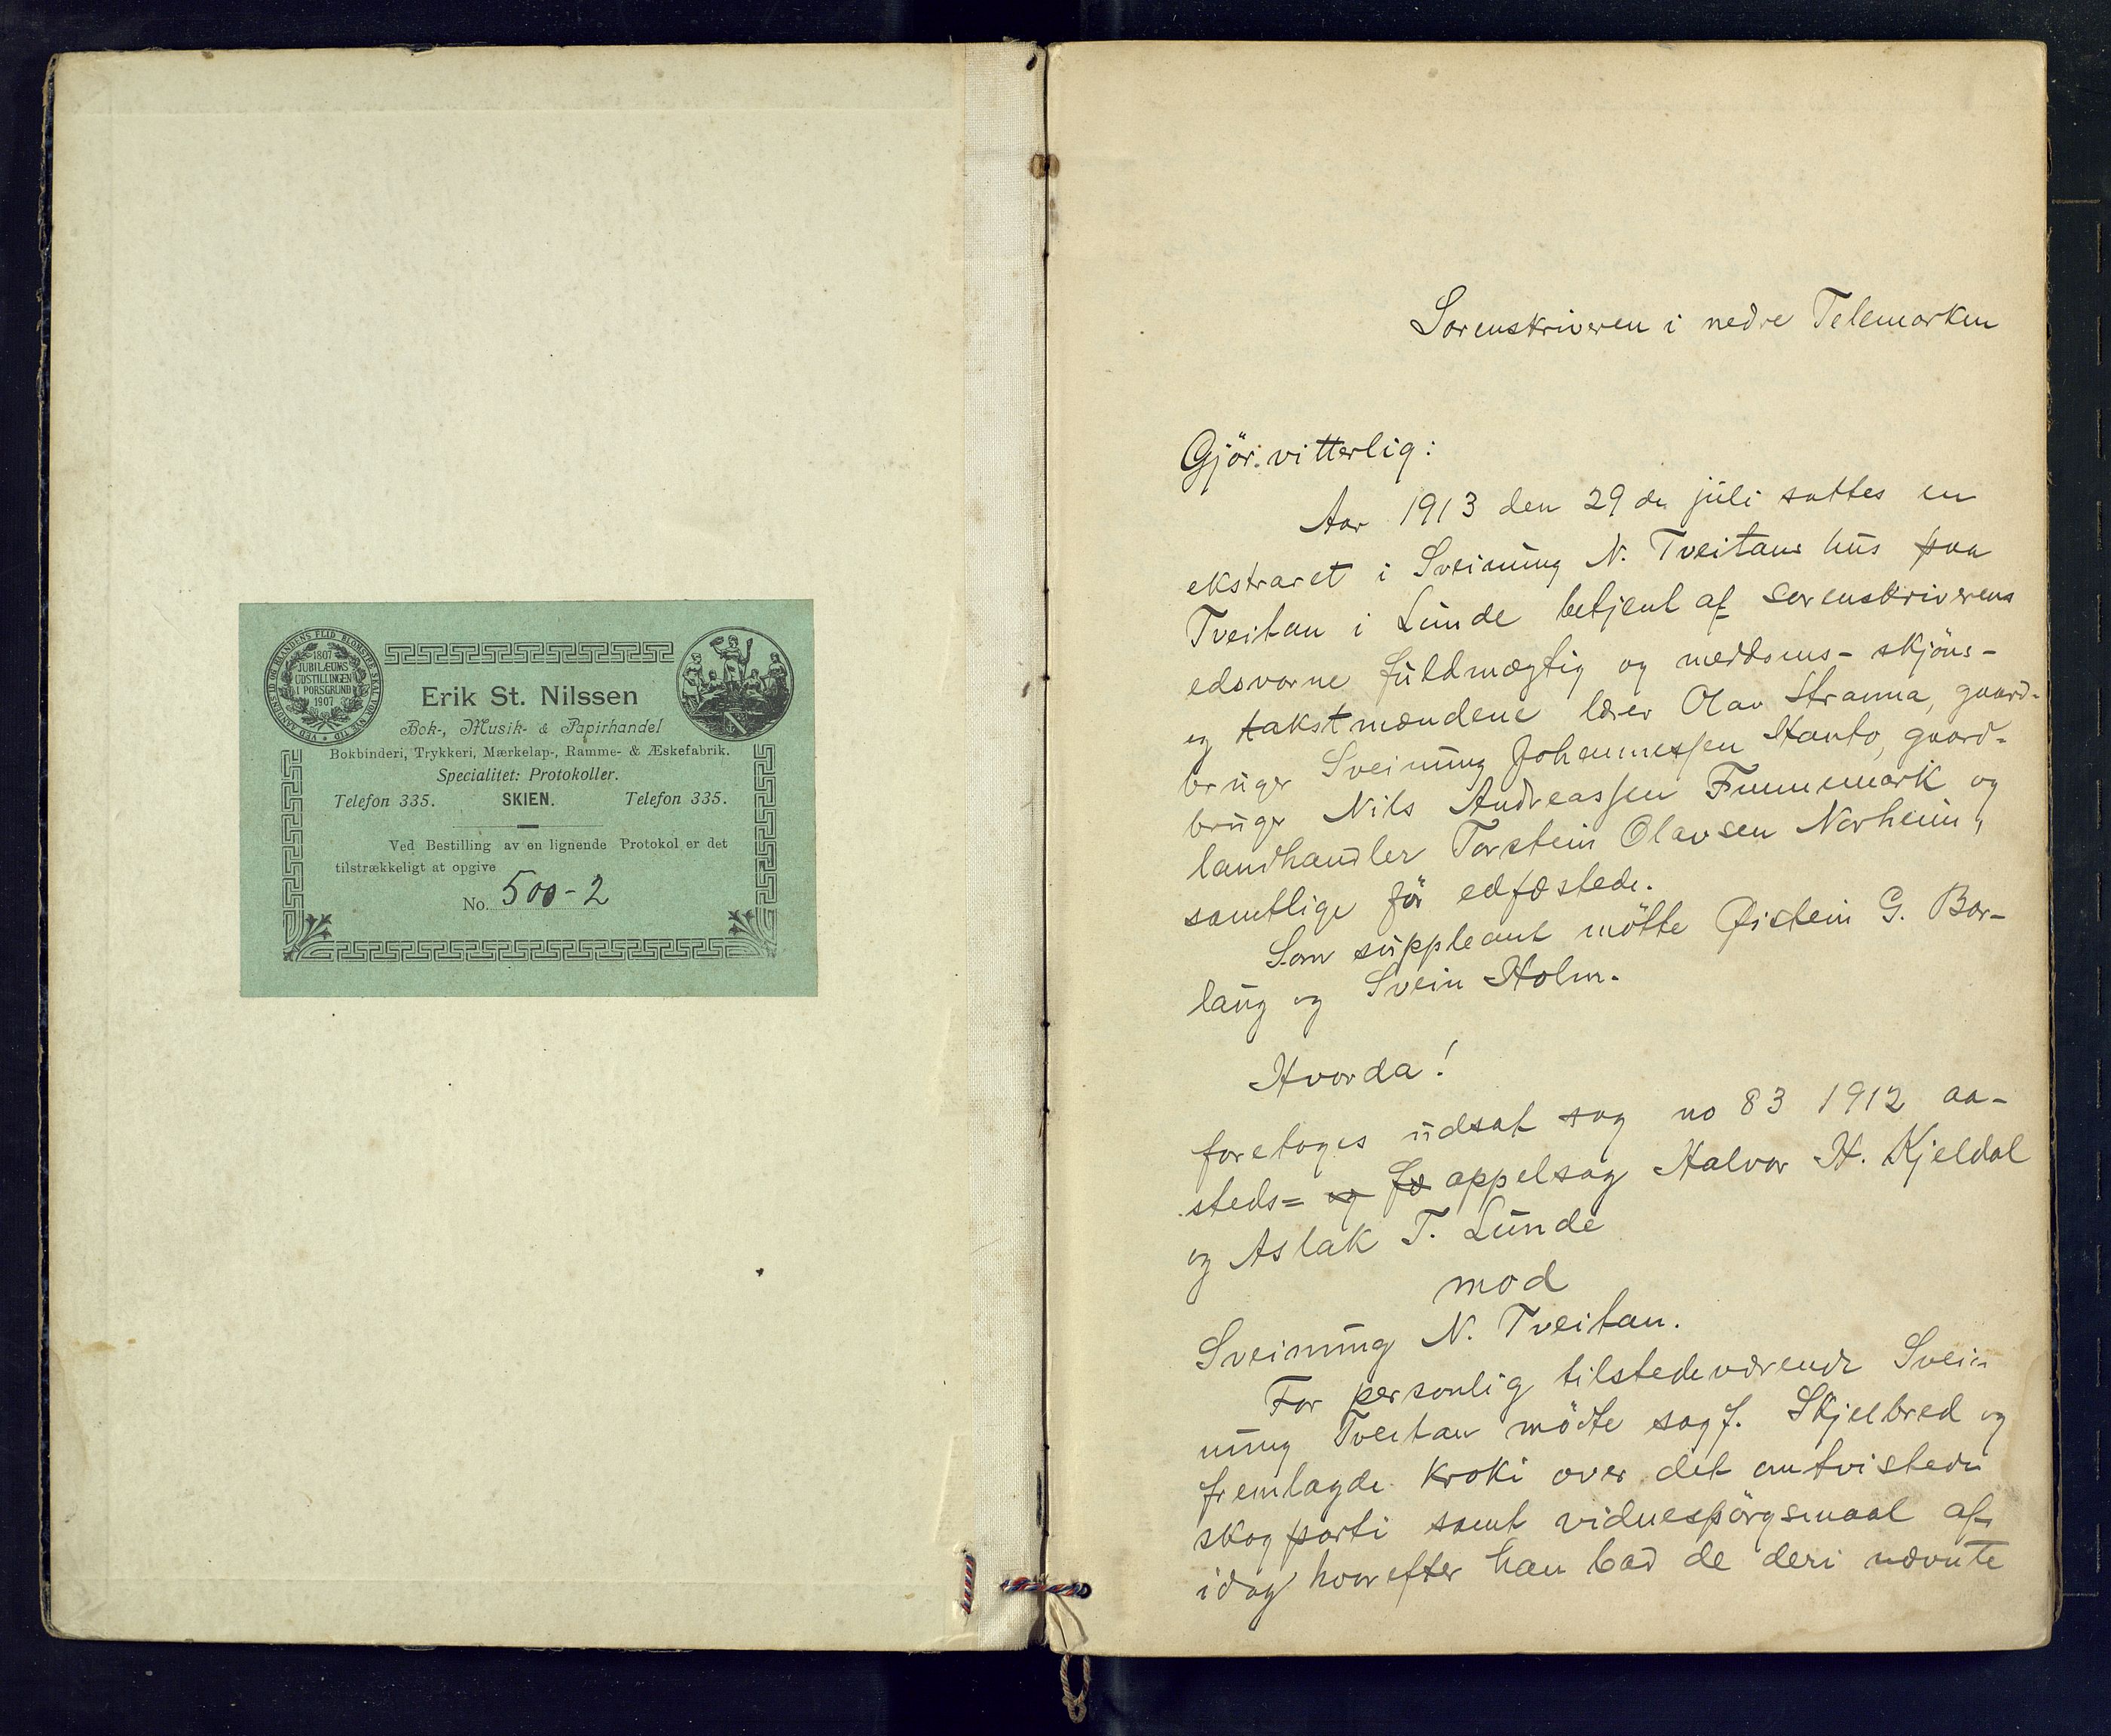 VED AANDENS ID OG HAANDENS FLID BLOMSTRE SKAL VOR NYE TID
1807
JUBILÆUMS
UDSTILLINGEN
I PORSGRUND
1907
Erik St. Nilssen
Bok-, Musik- & Papirhandel
Bokbinderi, Trykkeri, Mærkelap-, Ramme- & Æskefabrik.
Specialitet: Protokoller.
Telefon 335. SKIEN. Telefon 335.
Ved Bestilling av en lignende Protokol er det
tilstrækkeligt at opgive
No. 500-2
Sorenskriveren i nedre Telemarken
Gjör vitterlig:
Aar 1913 den 29de juli sattes en
ekstraret i Sveinung N. Tveitans hus paa
Tveitan i Lunde betjent af sorenskriverens
edsvorne fuldmægtig og meddoms- skjöns-
og takstmændene lærer Olav Stranna, gaard-
bruger Sveinung Johannessen Hanto, gaard-
bruger Nils Andreassen Fummemark og
landhandler Torstein Olavsen Norheim,
samtlige för edfæstede.
Som suppleant mötte Øistein G. Bor-
laug og Svein Holm.
Hvorda!
foretoges udsat sag no 83 1912 aa-
steds= og fæ appelsag Halvor H. Kjeldal
og Aslak T. Lunde
mod
Sveinung N. Tveitan.
For personlig tilstedeværende Svein
ung Tveitan mödte sagf. Skjelbred og
fremlagde kroki over det omtvistede
skogparti samt vidnespörgsmaal af
idag hvorefter han bad de deri nævnte